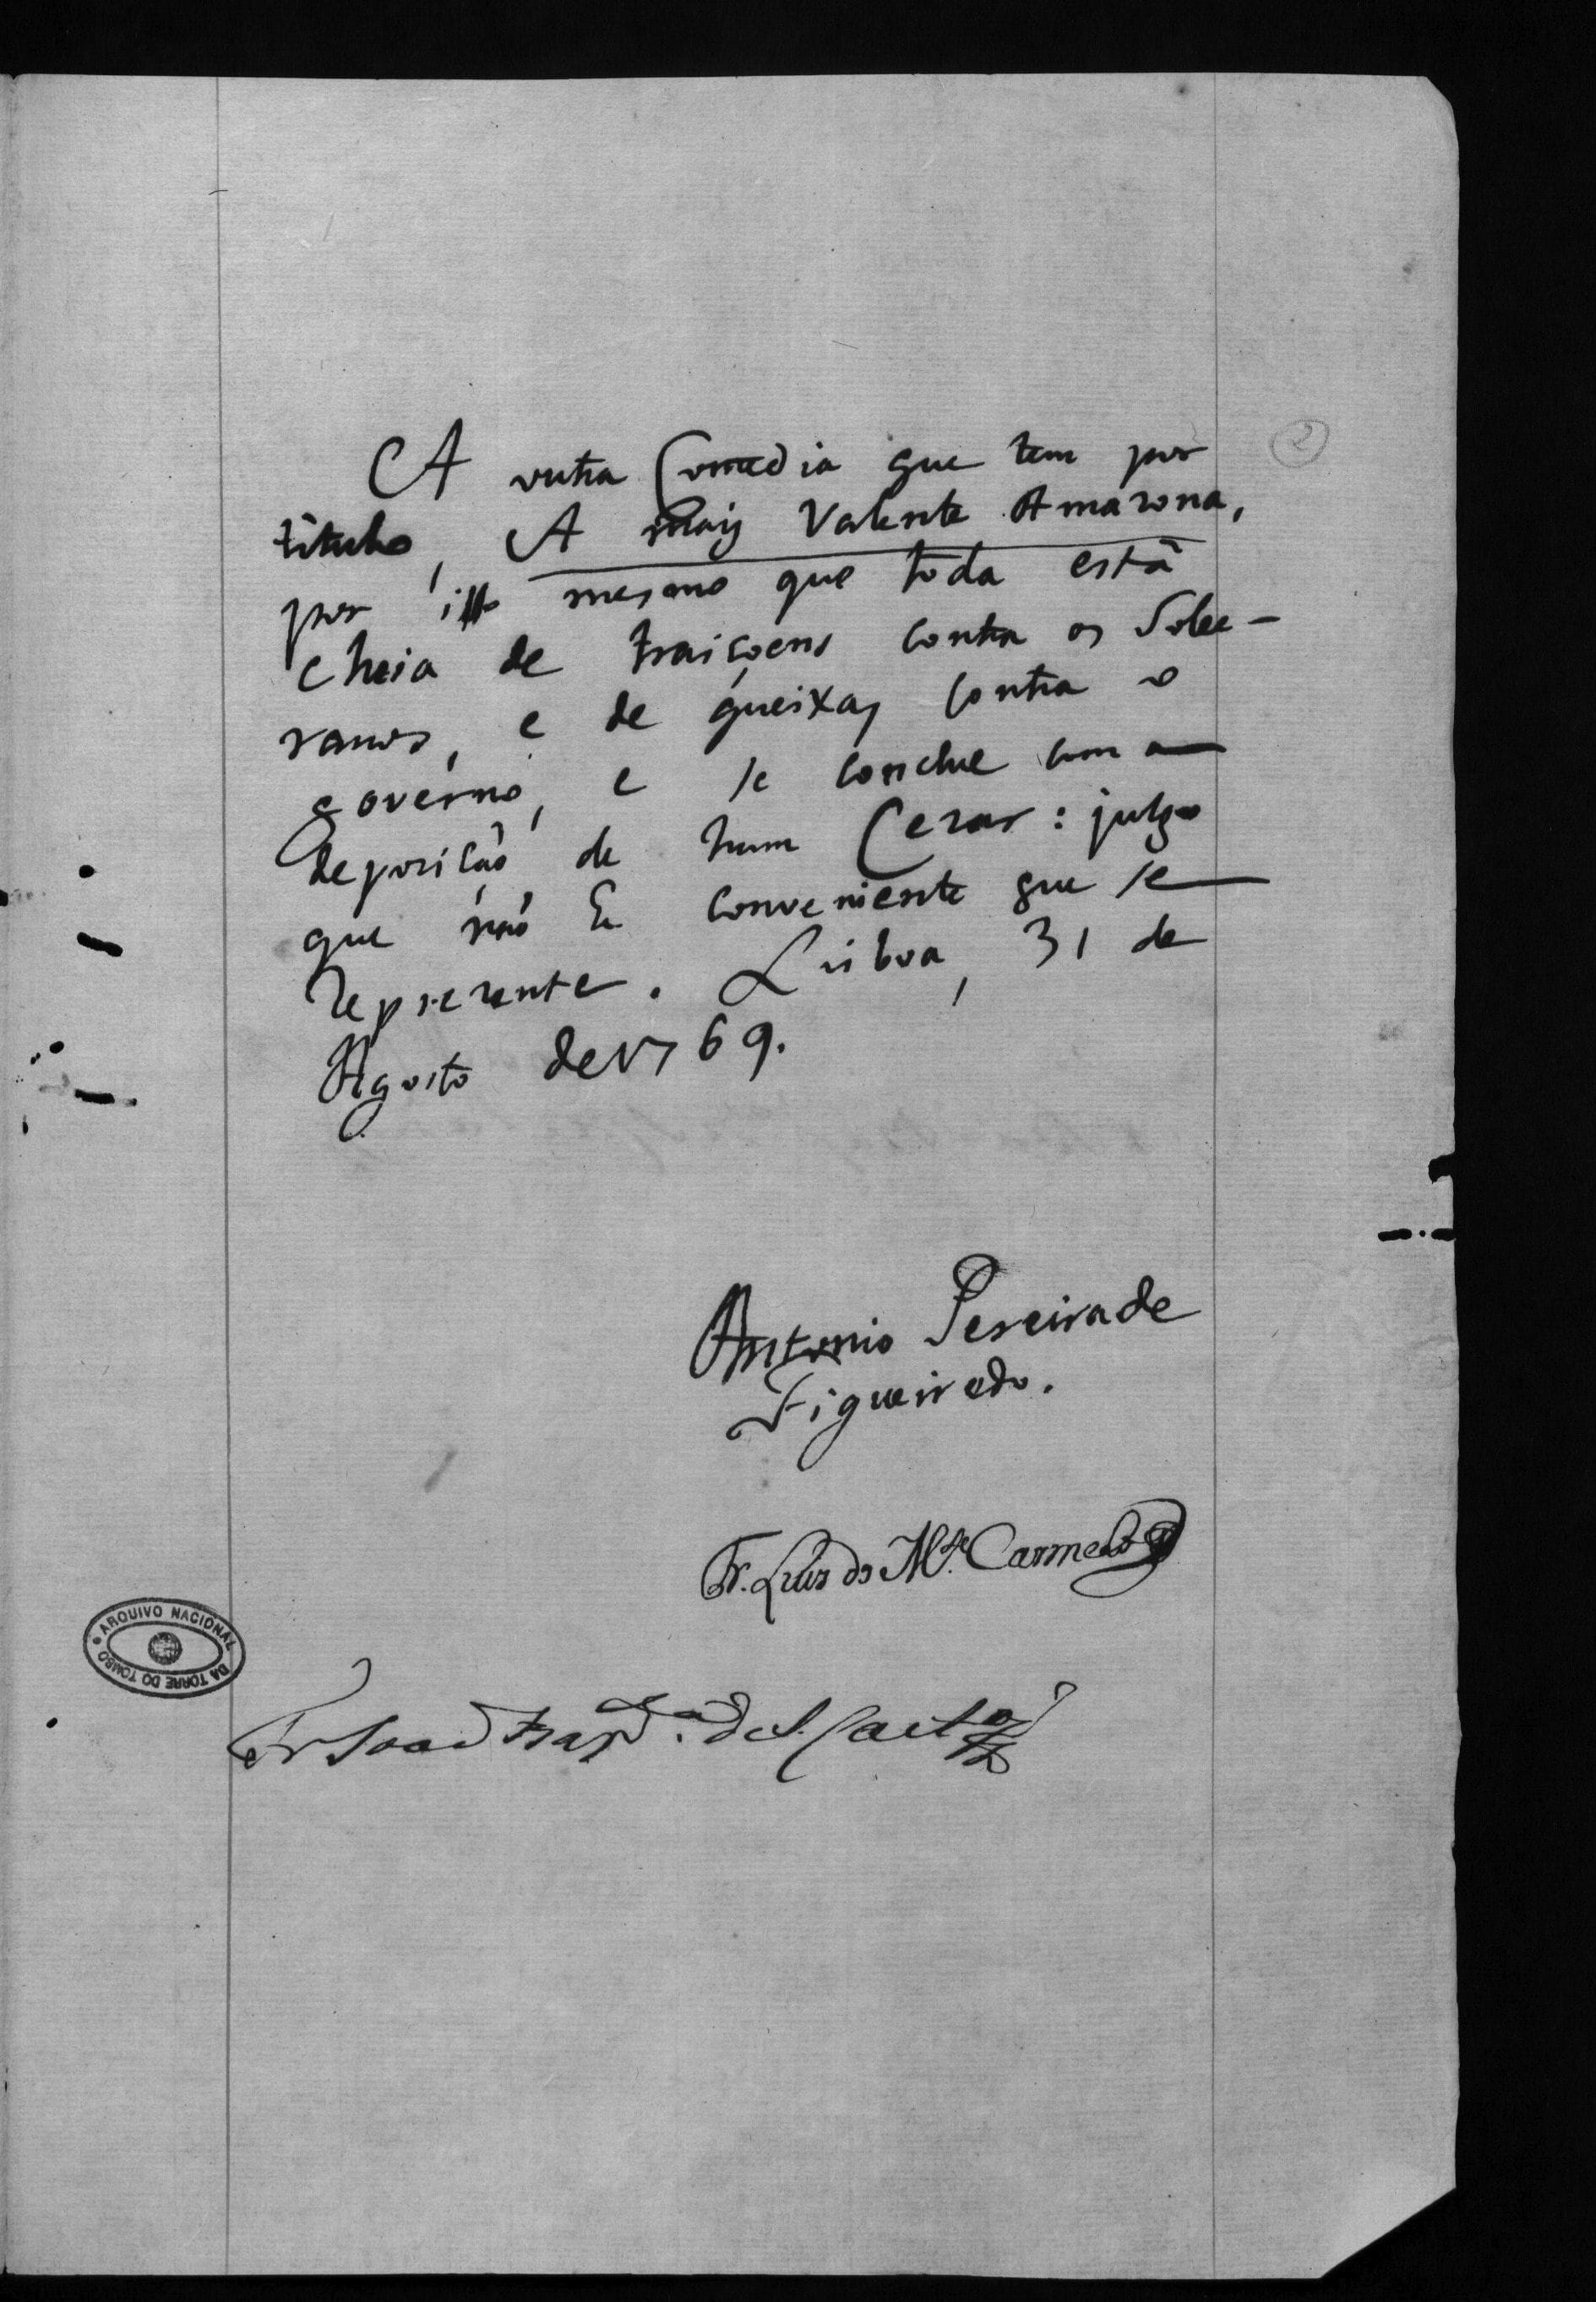 2
A outra Comedia que tem por
titulo, A mais Valente Amazona,
por isso mesmo que toda está
cheia de traiçoens contra os Sobe-
ranos, e de queixas contra o
governo, e se conclue com a
deposicaõ de hum Cezar: julgo
que naõ he conveniente que se
reprezente. Lisboa, 31 de
Agosto de 1769.
Antonio Pereira de
Figueiredo.
Fr. Luis do Mte. Carmelo
Fr Joaõ Bapta. de S. Caetano
ARQUIVO NACIONAL DA TORRE DO TOMBO